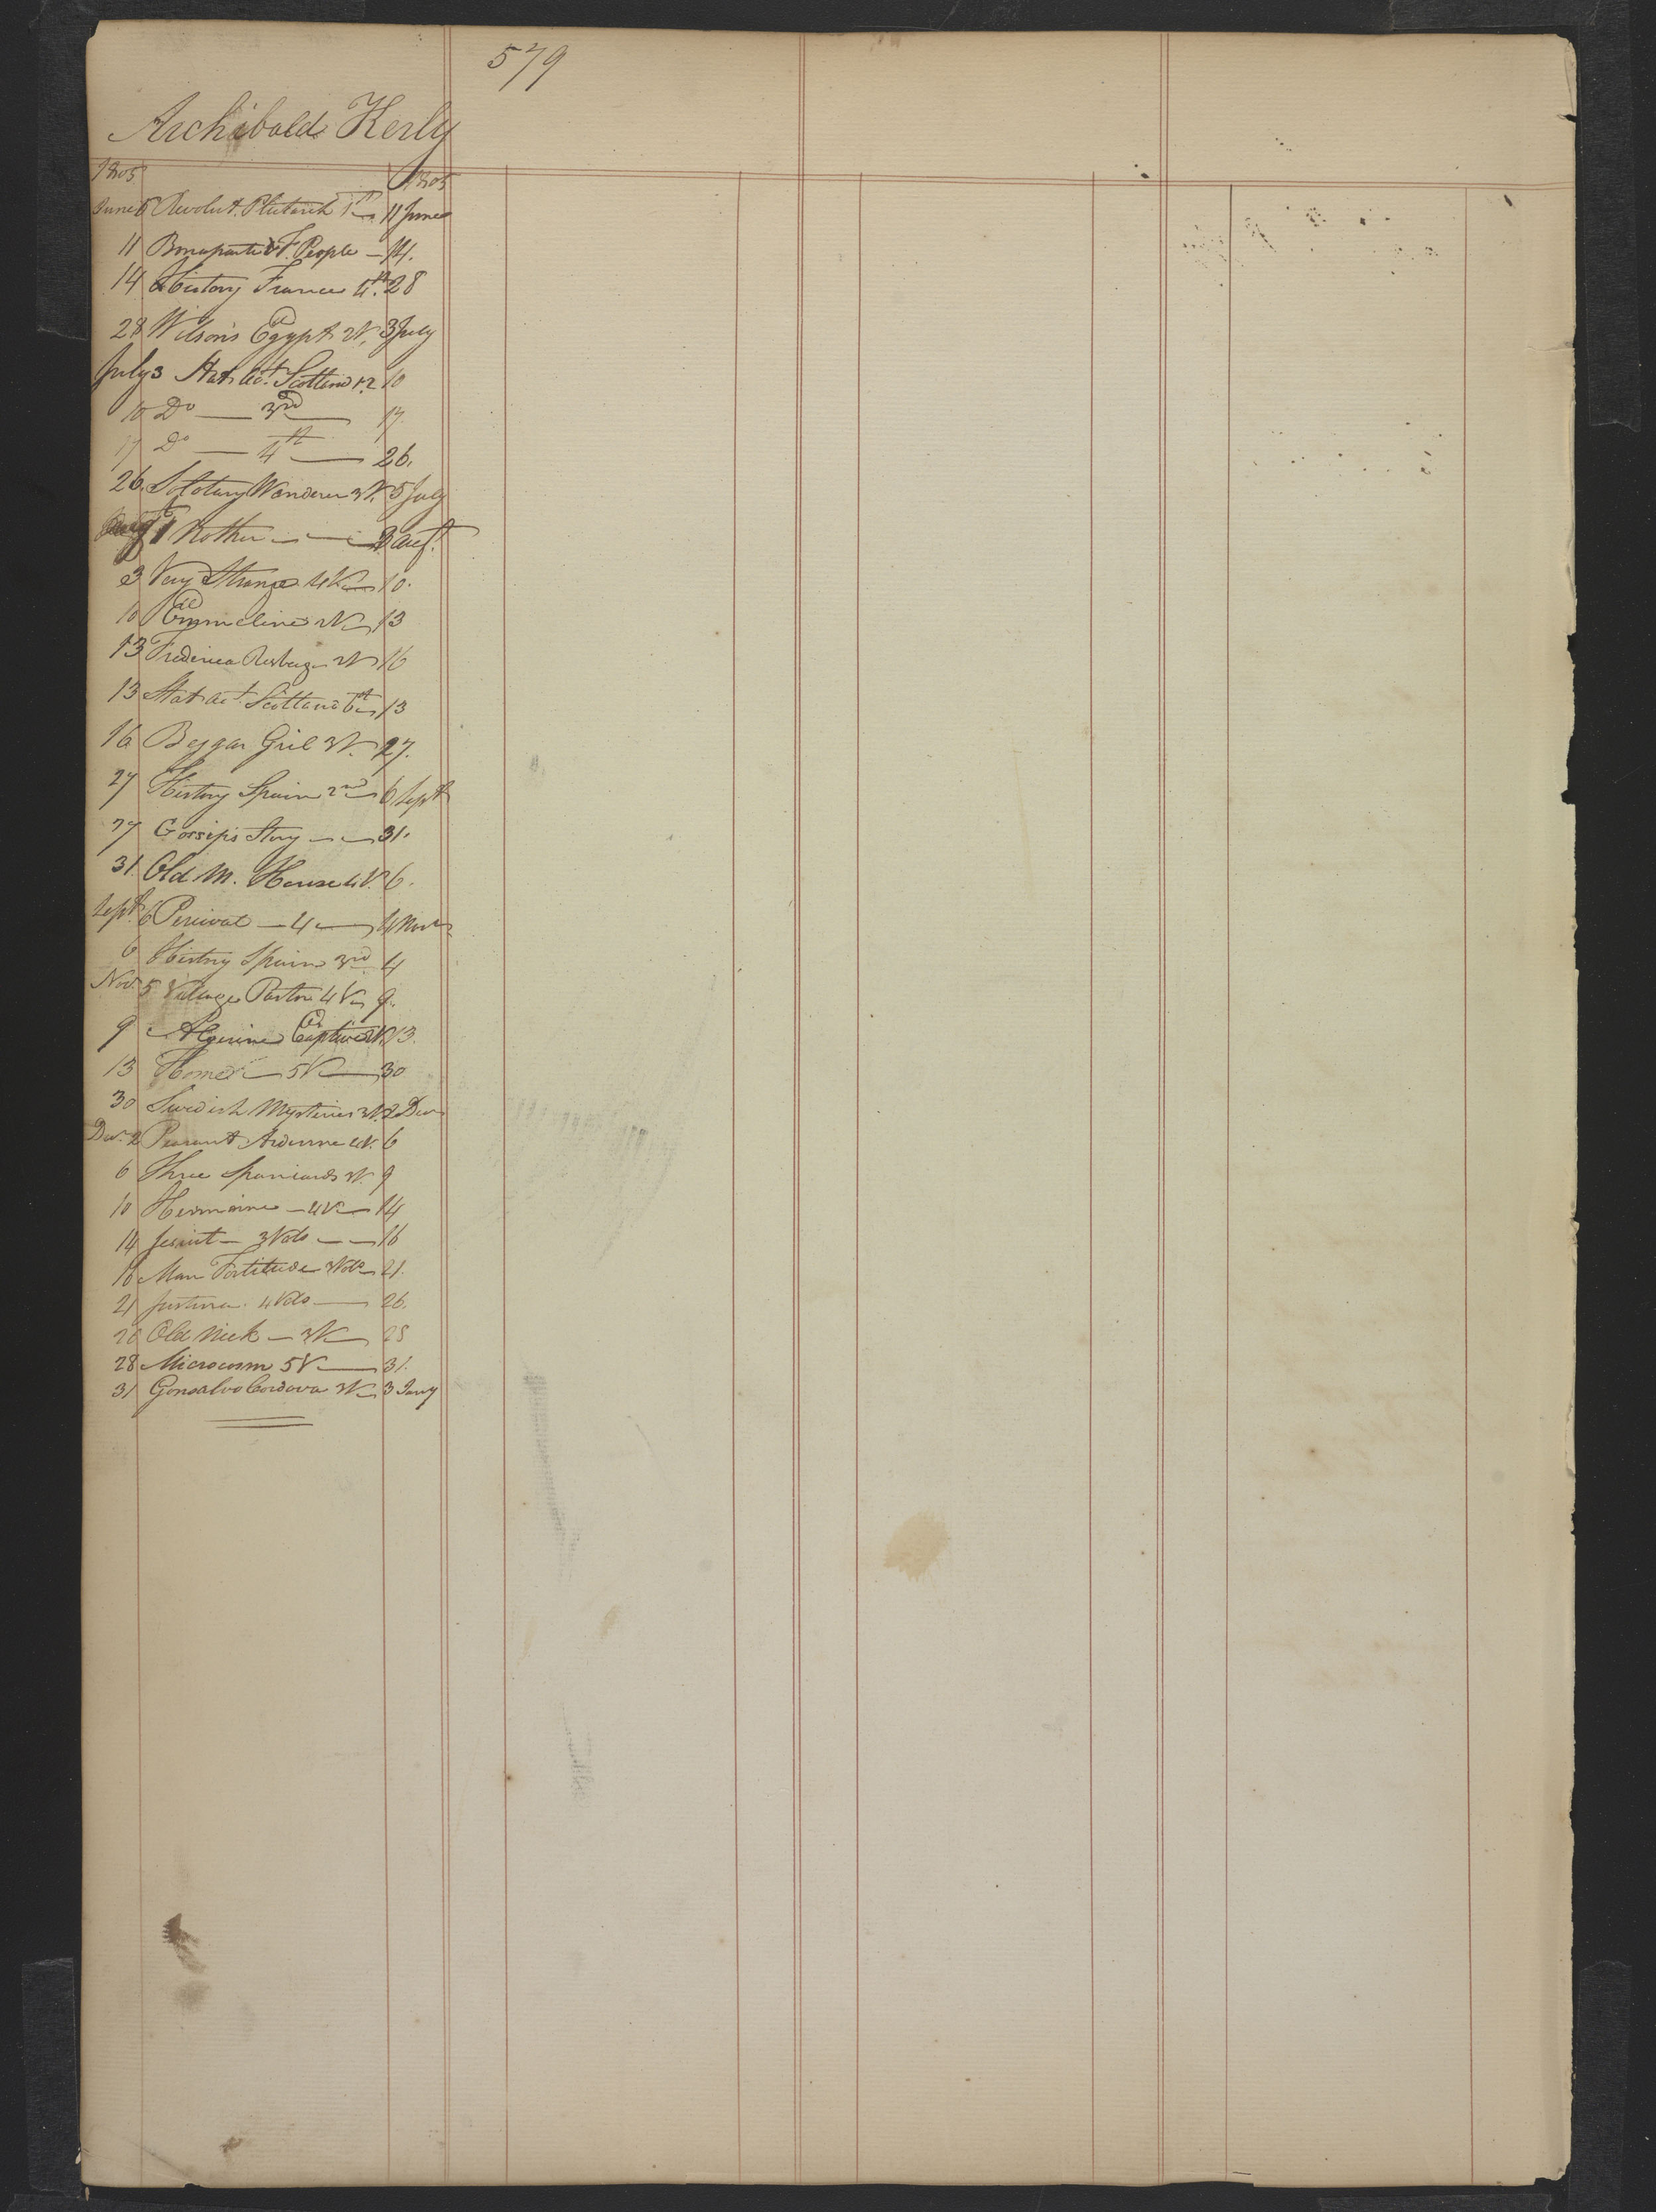 579
Archibald Kerly
1805 1805
June 6 Revolut. Plutarch 1st 11 June
11 Bonaparte & F. People — 14.
14 History France 4th. 28
28 Wilson's Egypt 2V. 3 July
July 3 Stat. Act. Scotland 12 10
10 Do — 3rd — 17
17 Do — 4th — 26.
26. Solotary Wanderer 3V. 5 July
1 Mother — — 3 Augt.
3 Very Strange 4V — 10.
10 Emmeline 2V — 13
13 Frederica Risberg 2V 16
13 Stat. Act. Scotland 6th 13
16 Beggar Gril 3V. 27.
27 History Spain 2nd 6 Sept
27 Gossip's Story — — 31.
31. Old M. House 4V. 6.
Sept. 6 Percival — 4 — 4 Nov
6 History Spain 3rd 4
Nov. 5 Village Pastor 4V 9.
9 Algerine Captive 2V. 13.
13 Home — 5V — 30
30 Swedish Mysteries 3V. 2 Dec
Dec. 2 Peasant Ardenne 4V. 6
6 Three Spaniards 3V. 9
10 Hermione — 4V — 14
14 Jesuit — 3 Vols — — 16
16 Man Fortitude 3 Vols — 21.
21 Justina. 4 Vols — 26.
26 Old Nick — 3V — 28
28 Microcosm 5V — 31.
31 Gonsalvo Cordova 3V — 3 Jany